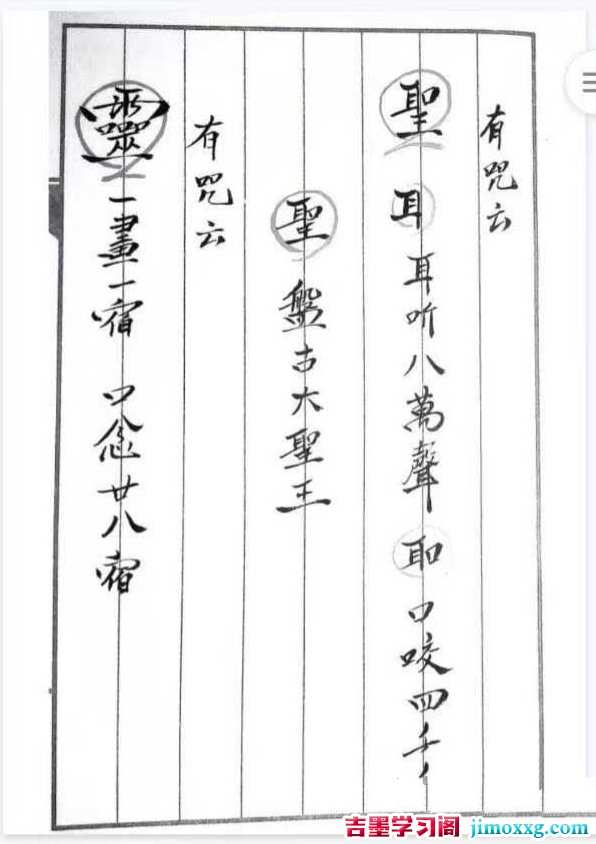 有咒云
聖 耳 耳听八萬聲 口咬四
聖 盤古大聖王
有咒云
靈 一畫一宿 口念廿八宿
吉墨学习阁 jimoxxg.com